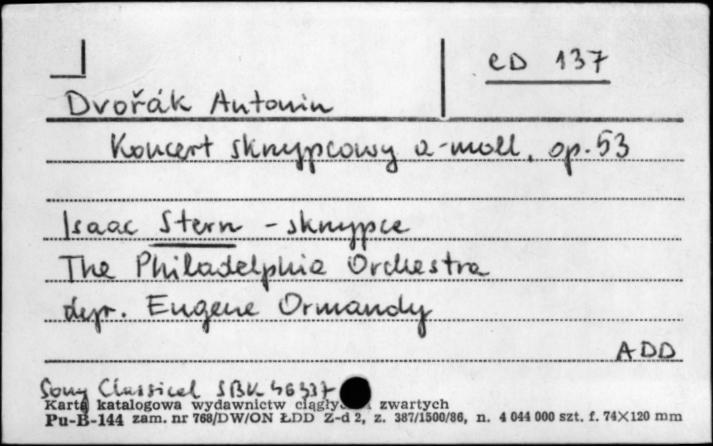 CD 137
Dvořák Antonin
Koncert skrzypcowy a-moll, op. 53
Isaac Stern - skrzypce
The Philadelphia Orchestra
dyr. Eugene Ormandy
ADD
Sony Classical SBK 46337
Karta katalogowa wydawnictw zwartych
Pu-B-144 zam. nr 768/DW/ON ŁDD Z-d 2, z. 387/1500/86, n. 4 044 000 szt. f. 74×120 mm